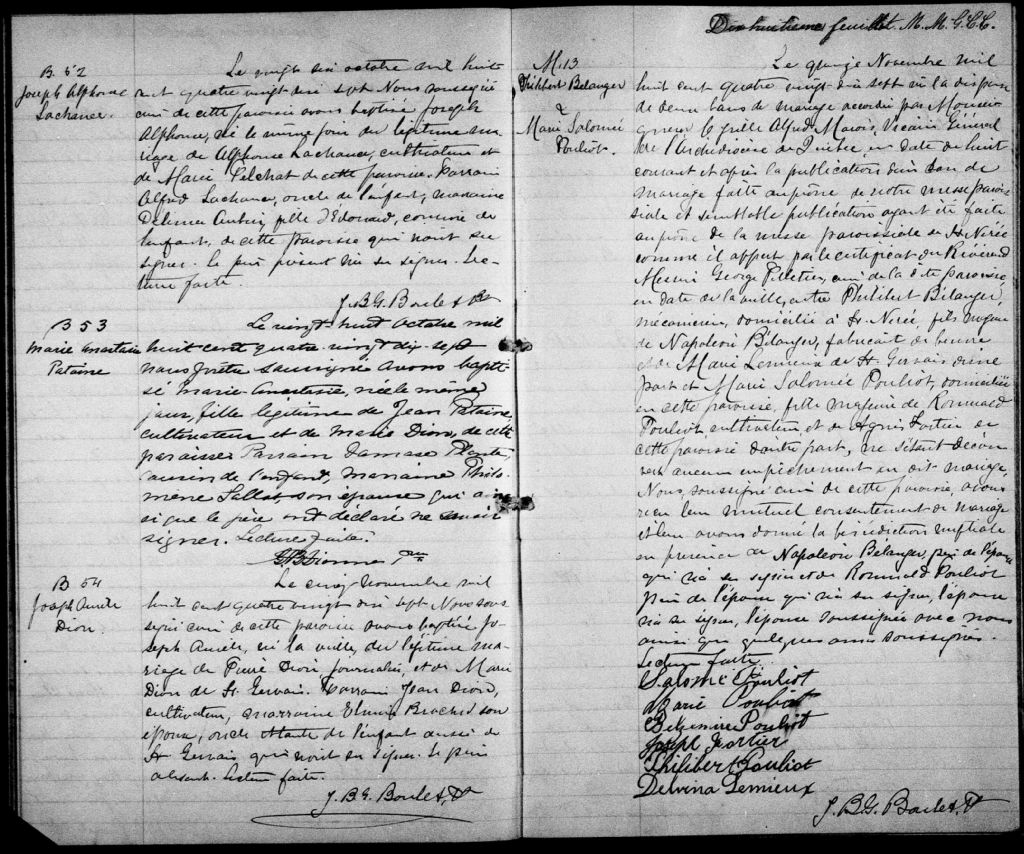 B. 52
Joseph Alphonse
Lachance.
Le vingt six octobre mil huit
cent quatre vingt dix sept Nous soussigné
curé de cette paroisse avons baptisé Joseph
Alphonse, né le même jour du légitime ma-
riage de Alphonse Lachance, cultivateur et
de Marie Pelchat de cette paroisse. Parrain
Alfred Lachance, oncle de l'enfant, marraine
fille d'Édouard, cousine de
l'enfant, de cette paroisse qui n'ont su
signer. Le père présent n'a su signer. Lec-
ture faite.
J. B. G. Boulet, Ptre
B 53
Marie Anastasie
Patoine
Le vingt-huit Octobre mil
huit cent quatre-vingt-dix-sept
nous Prêtre soussigné avons bapti-
sé Marie-Anastasie, née le même
jour, fille légitime de Jean Patoine,
cultivateur et de Marie Dion, de cette
paroisse. Parrain Damase Plante
cousin de l'enfant, marraine Philo-
mène son épouse qui ain-
si que le père ont déclaré ne savoir
signer. Lecture faite.
Dionne Ptre
B 54
Joseph Aurèle
Dion.
Le cinq Novembre mil
huit cent quatre vingt dix sept Nous sous-
signé curé de cette paroisse avons baptisé Jo-
seph Aurèle, né la veille, du légitime ma-
riage de Pierre Dion, journalier, et de Marie
Dion de St. Gervais. Parrain Jean Dion,
cultivateur, marraine son
épouse, oncle et tante de l'enfant aussi de
St Gervais qui n'ont su signer. Le père
absent. Lecture faite.
J. B. G. Boulet, Ptre
Dix huitième feuillet M. M. G. C. C.
M. 13
Philibert Bélanger
&
Marie Salomée
Pouliot.
Le quinze Novembre mil
huit cent quatre vingt dix sept vu la dispense
de deux bans de mariage accordée par Monsei-
gneur Alfred Marois, Vicaire Général
de l'Archidiocèse de Québec, en date du huit
courant et après la publication d'un ban de
mariage faite au prône de notre messe parois-
siale et semblable publication ayant été faite
au prône de la messe paroissiale de St Nérée
comme il appert par le certificat du Révérend
Messire George Pelletier, curé de la dite paroisse,
en date de la veille, entre Philibert Bélanger,
mécanicien, domicilié à St. Nérée, fils majeur
de Napoléon Bélanger, fabricant de beurre
et de Marie Lemieux de St Gervais d'une
part et Marie Salomée Pouliot, domiciliée
en cette paroisse, fille majeure de Romuald
Pouliot cultivateur et de Agnès Fortier de
cette paroisse d'autre part, ne s'étant décou-
vert aucun empêchement au dit mariage
Nous, soussigné curé de cette paroisse, avons
reçu leur mutuel consentement de mariage
et leur avons donné la bénédiction nuptiale
en présence de Napoléon Bélanger, père de l'époux
qui n'a su signer et de Romuald Pouliot
père de l'épouse qui n'a su signer, l'époux
n'a su signer, l'épouse soussignée avec nous
ainsi que quelques amis soussignés.
Lecture faite.
Salomé Pouliot
Marie Pouliot
Pouliot
Joseph Fortier
Philibert Pouliot
Delvina Lemieux
J. B. G. Boulet, Ptre